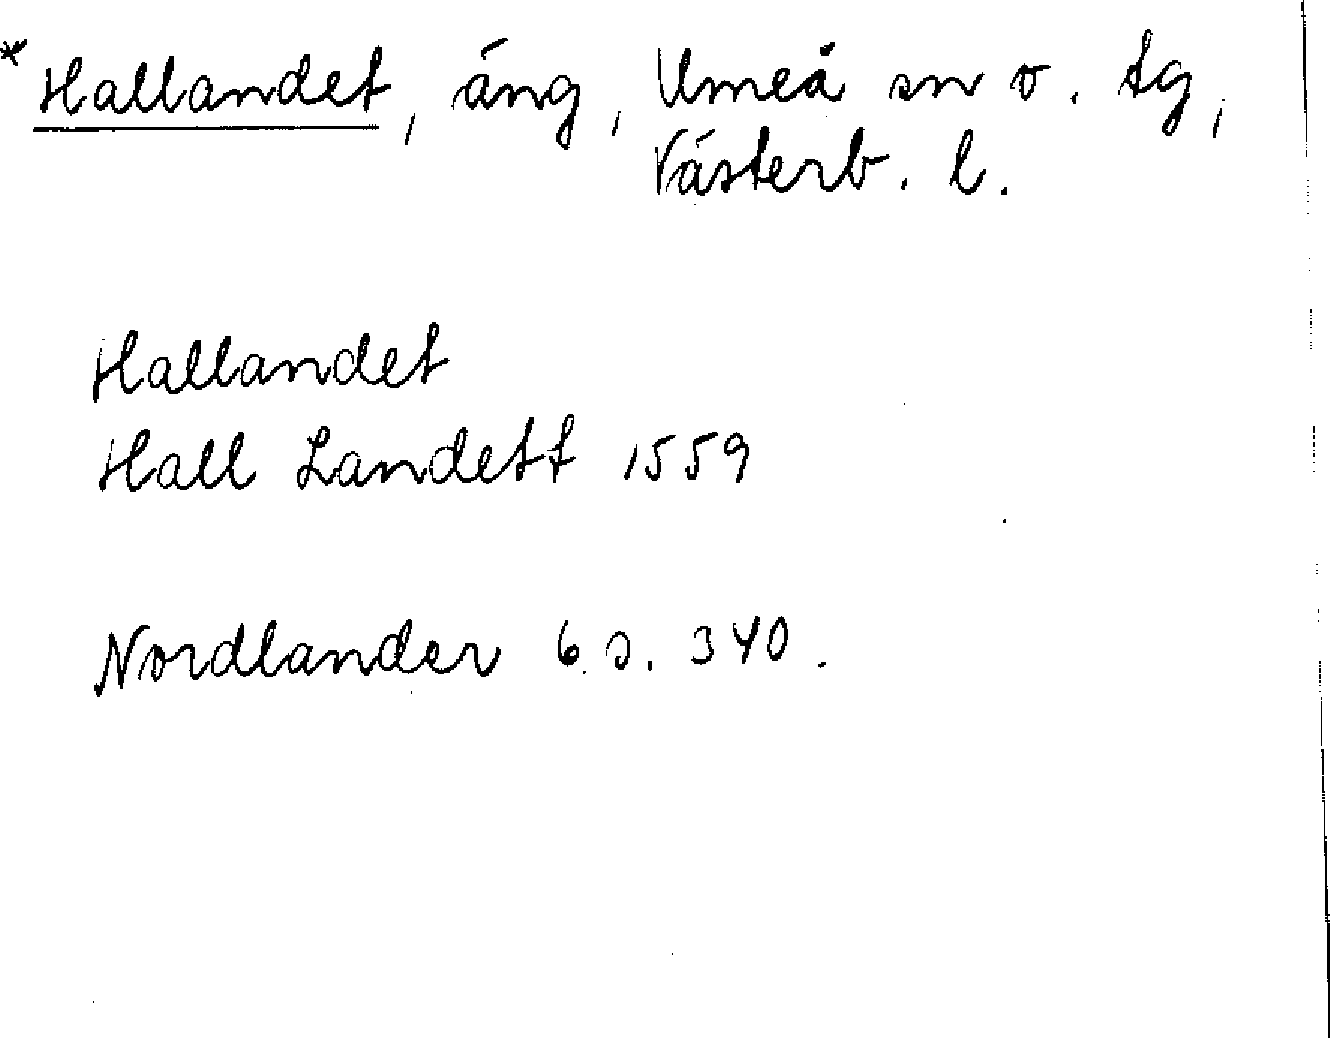 * Hallandet, äng, Umeå sn o. tg,
Västerb. l.
Hallandet
Hall Landett 1559
Nordlander 6 s. 340.